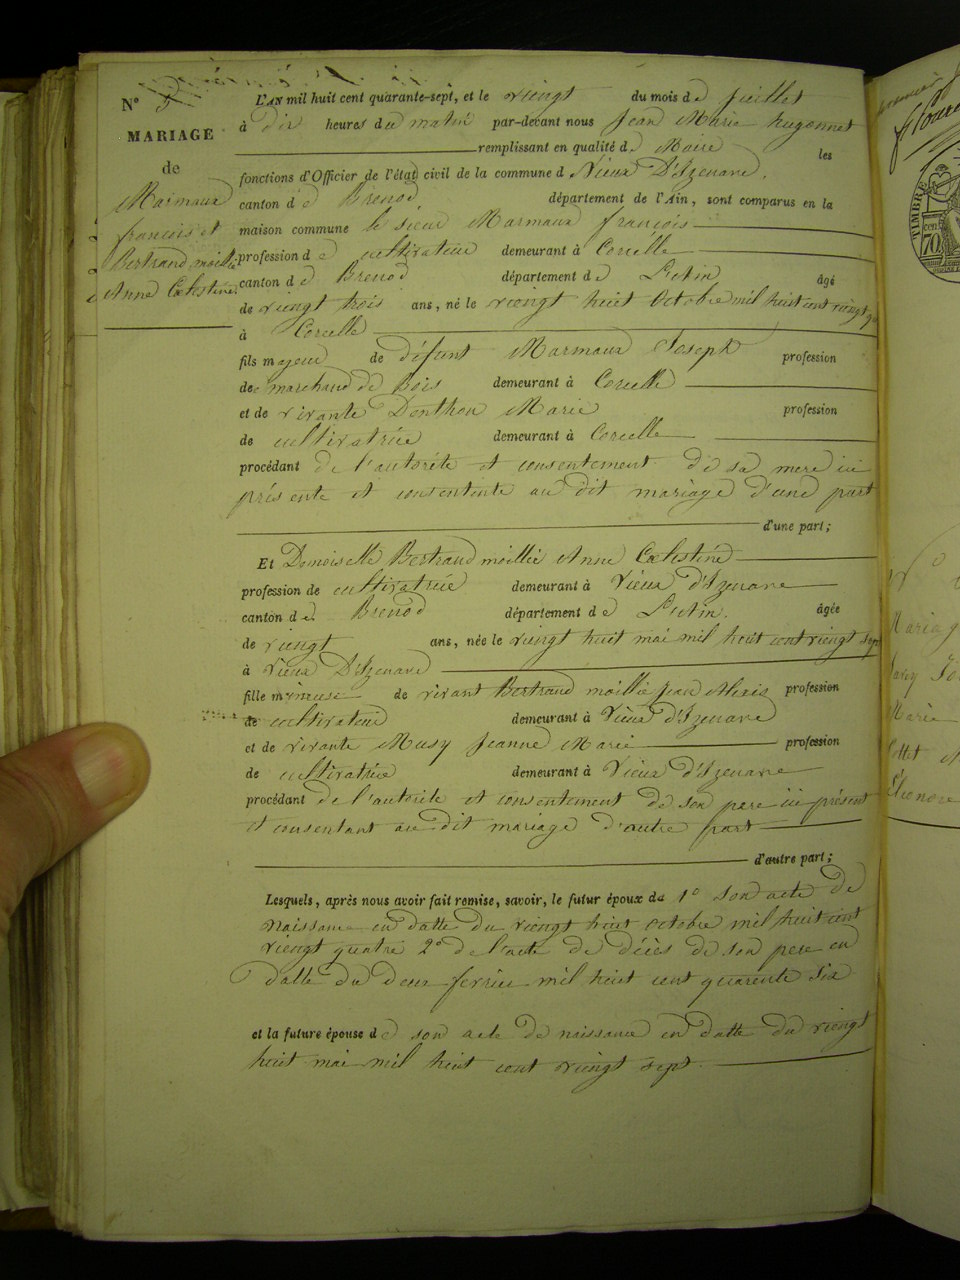 N° 5
MARIAGE
de
Marmaux
francois et
Bertrand moillie
Anne Cœlestine
L'AN mil huit cent quarante-sept, et le viengt du mois de Juillet
à dix heures du matin par-devant nous Jean Marie hugonnet
remplissant en qualité de Maire les
fonctions d'Officier de l'état civil de la commune d Vieux D'Izenave,
canton de Brenod département de l'Ain, sont comparus en la
maison commune le sieur Marmaux françois
profession de cultivateur demeurant à Corcelle
canton de Brenod département de L'Ain âgé
de viengt trois ans, né le viengt huit Octobre mil huit cent viengt
à Corcelle
fils majeur de défunt Marmaux Joseph profession
de marchand de Bois demeurant à Corcelle
et de vivante Donthon Marie profession
de cultivatrice demeurant à Corcelle
procédant de l'autorité et consentement de sa mere ici
présente et consentente au dit mariage d'une part
d'une part;
Et Demoiselle Bertrand moillie Anne Cœlestine
profession de cultivatrice demeurant à Vieux d'Izenave
canton de Brenod département de L'Ain. âgée
de viengt ans, née le viengt huit mai mil huit cent viengt sept
à Vieux D'Izenave
fille mineuse de vivant Bertrand moillie Jean Alexis profession
de cultivateur demeurant à Vieux d'Izenave
et de vivante Musy Jeanne Marie profession
de cultivatrice demeurant à Vieux d'Izenave
procédant de l'autorité et consentement de son pere ici présent
et consentant au dit mariage d'autre part
d'autre part;
Lesquels, après nous avoir fait remise, savoir, le futur époux de 1° son acte de
naissance en datte du viengt huit octobre mil huit cent
viengt quatre 2° de l'acte de décès de son pere en
datte du deux fevrier mil huit cent quarente six
et la future épouse de son acte de naissance en datte du viengt
huit mai mil huit cent viengt sept
TIMBRE
70